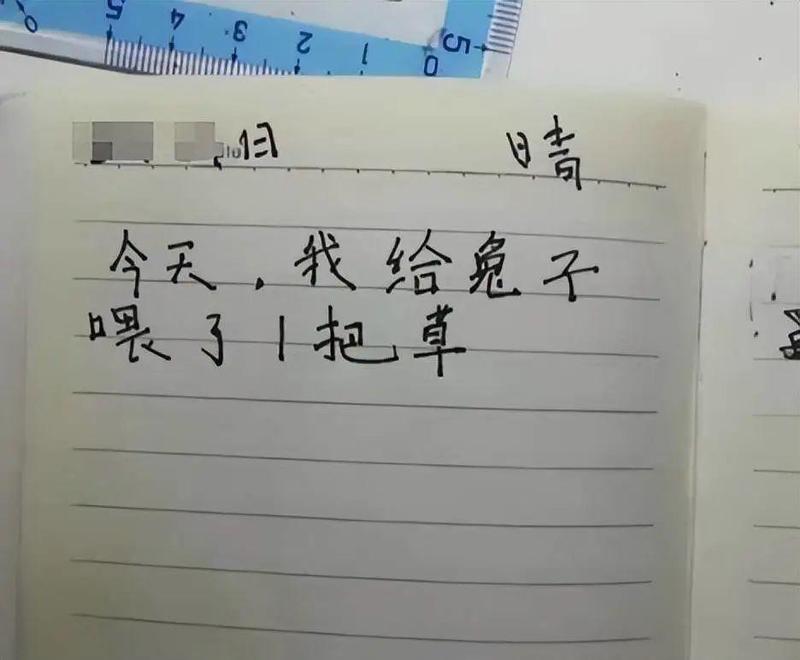 5 4 3 2 1 0 5
日 晴
今天,我给兔子
喂了1把草